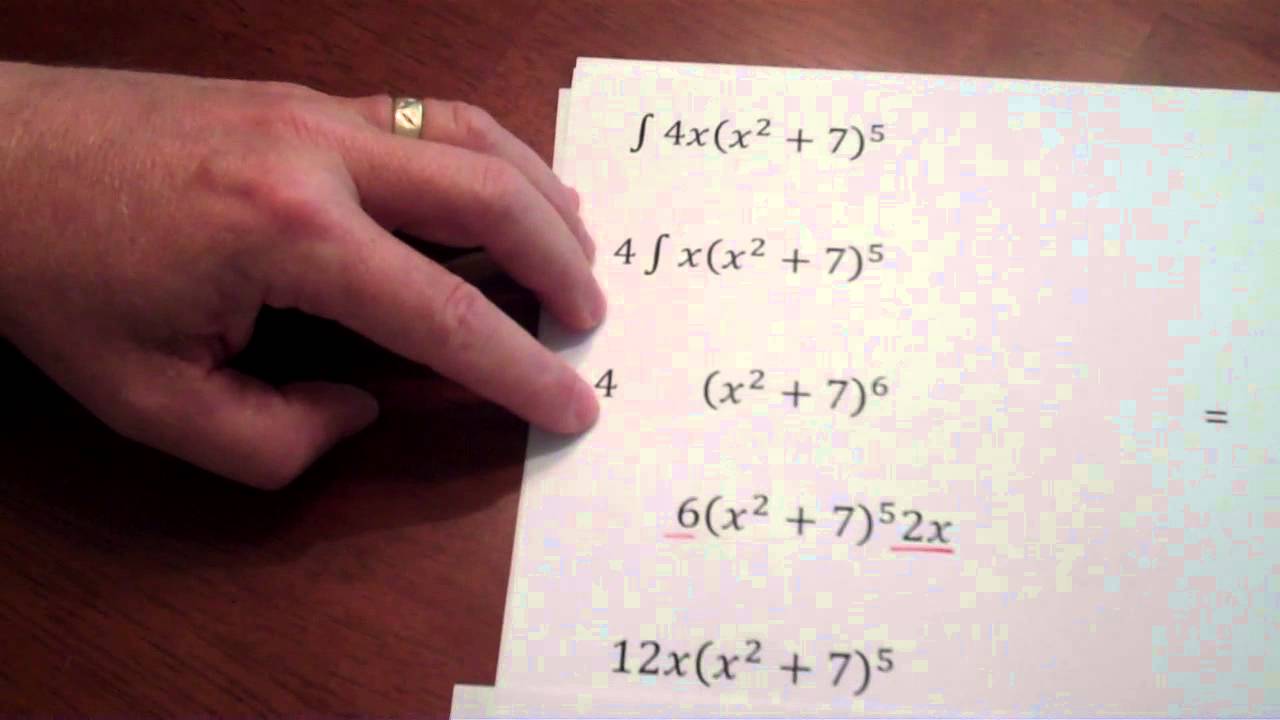 ∫ 4x(x² + 7)⁵
4 ∫ x(x² + 7)⁵
4 (x² + 7)⁶ =
6(x² + 7)⁵2x
12x(x² + 7)⁵